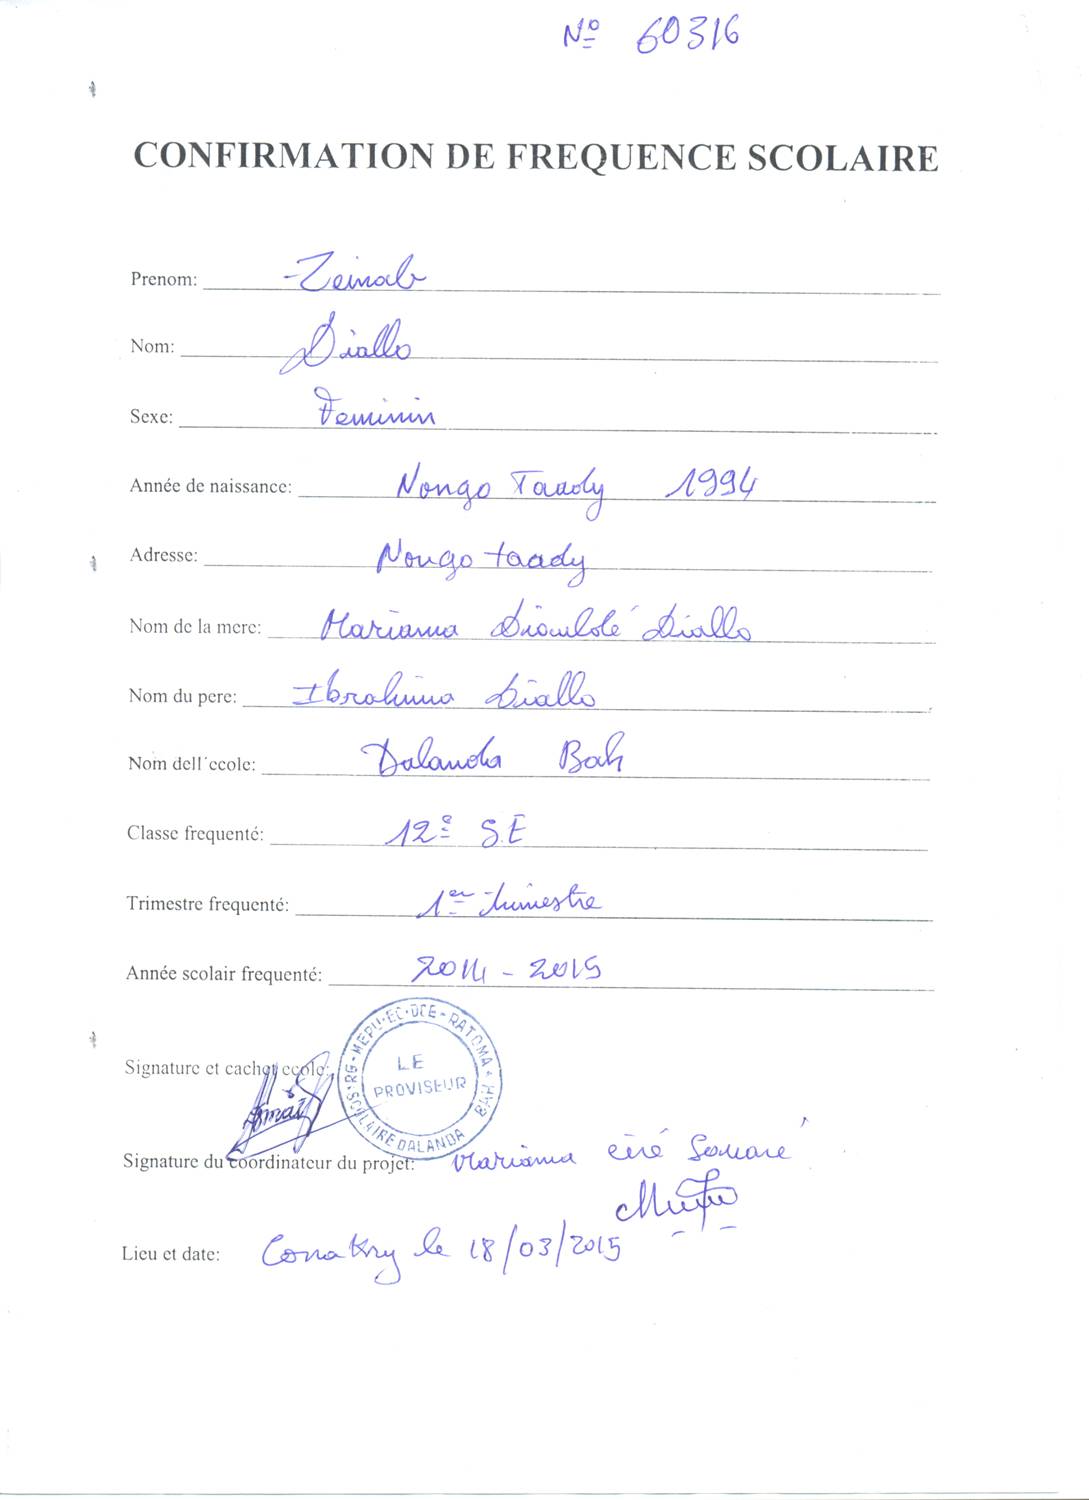 Nº 60316
CONFIRMATION DE FREQUENCE SCOLAIRE
Prenom: Zeinab
Nom: Diallo
Sexe: Feminin
Année de naissance: Nongo Taady 1994
Adresse: Nongo taady
Nom de la mere: Mariama Dioulolé Diallo
Nom du pere: Ibrahima Diallo
Nom dell'ecole: Dalanda Bah
Classe frequenté: 12e S.E
Trimestre frequenté: 1er trimestre
Année scolair frequenté: 2014 - 2015
Signature et cachet ecole:
S/RG-MEPU-EC-DCE-RATOMA
LE
PROVISEUR
SCOLAIRE DALANDA BAH
Signature du coordinateur du projet: Mariama ciré Souaré
Lieu et date: Conakry le 18/03/2015